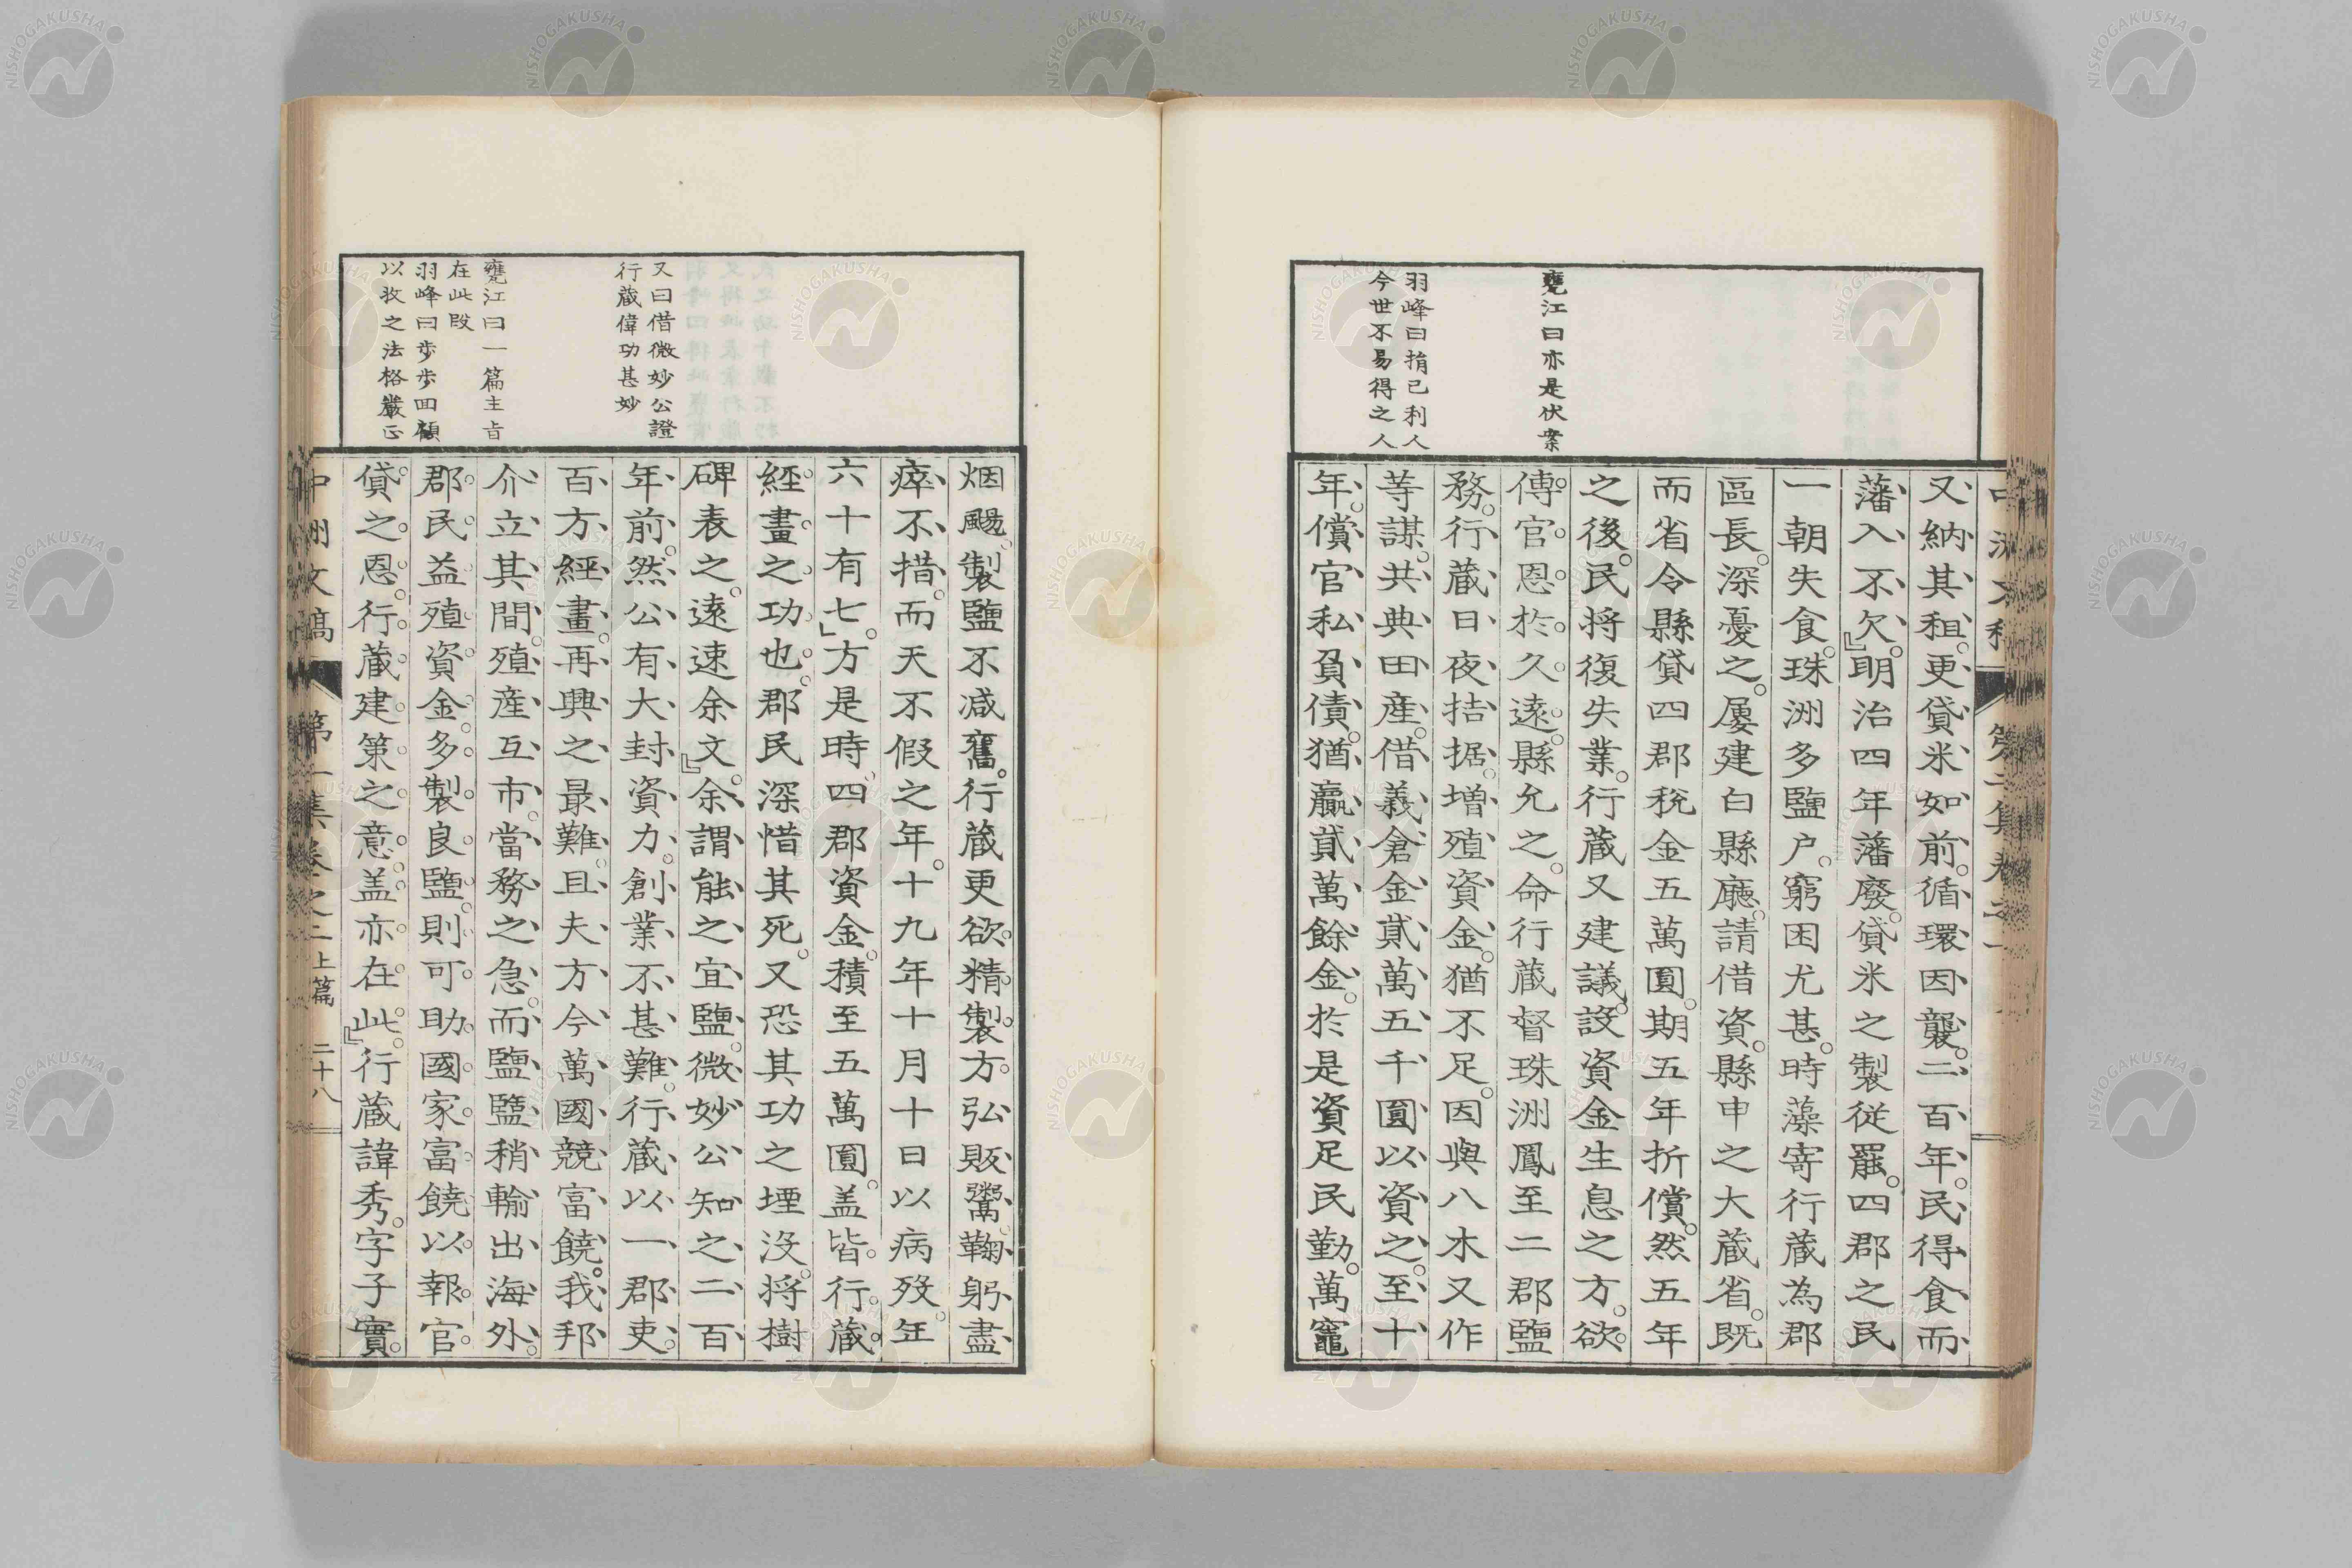 甕江曰亦是伏案
羽峰曰捐己利人
今世不易得之人
又納其租。更貸米如前。循環因襲。二百年。民得食而
藩入不欠。』明治四年藩廢。貸米之製從罷。四郡之民
一朝失食。珠洲多鹽户。窮困尤甚。時藻寄行蔵為郡
區長。深憂之。屢建白縣廳。請借資。縣申之大蔵省。既
而省令縣貸四郡稅金五萬圓。期五年折償。然五年
之後。民将復失業。行蔵又建議。設資金生息之方。欲
傳官恩於久遠。縣允之。命行蔵督珠洲鳳至二郡鹽
務。行蔵日夜拮据。増殖資金。猶不足。因與八木又作
等謀。共典田産。借義倉金貳萬五千圓以資之。至十
年。償官私負債。猶贏貳萬餘金。於是資足民勤。萬竈
又曰借微妙公證
行蔵偉功甚妙
甕江曰一篇主旨
在此段
羽峰曰歩歩回顧
以攷之法格嚴正
烟颺。製鹽不减舊。行蔵更欲精製方。弘販鬻。鞠躬盡
瘁不措。而天不假之年。十九年十月十日以病歿。年
六十有七。』方是時四郡資金。積至五萬圓。盖皆行蔵
經畫之功也。郡民深惜其死。又恐其功之堙没。将樹
碑表之。遠速余文。』余謂能之宜鹽。微妙公知之二百
年前。然公有大封資力。創業不甚難。行蔵以一郡吏。
百方經畫。再興之最難。且夫方今萬國競富饒。我邦
介立其間。殖産互市。當務之急。而鹽鹽稍輸出海外。
郡民益殖資金。多製良鹽。則可助國家富饒以報官
貸之恩。行蔵建策之意。盖亦在此。』行蔵諱秀。字子實。
中洲文稿　第二集卷之二上篇　二十八